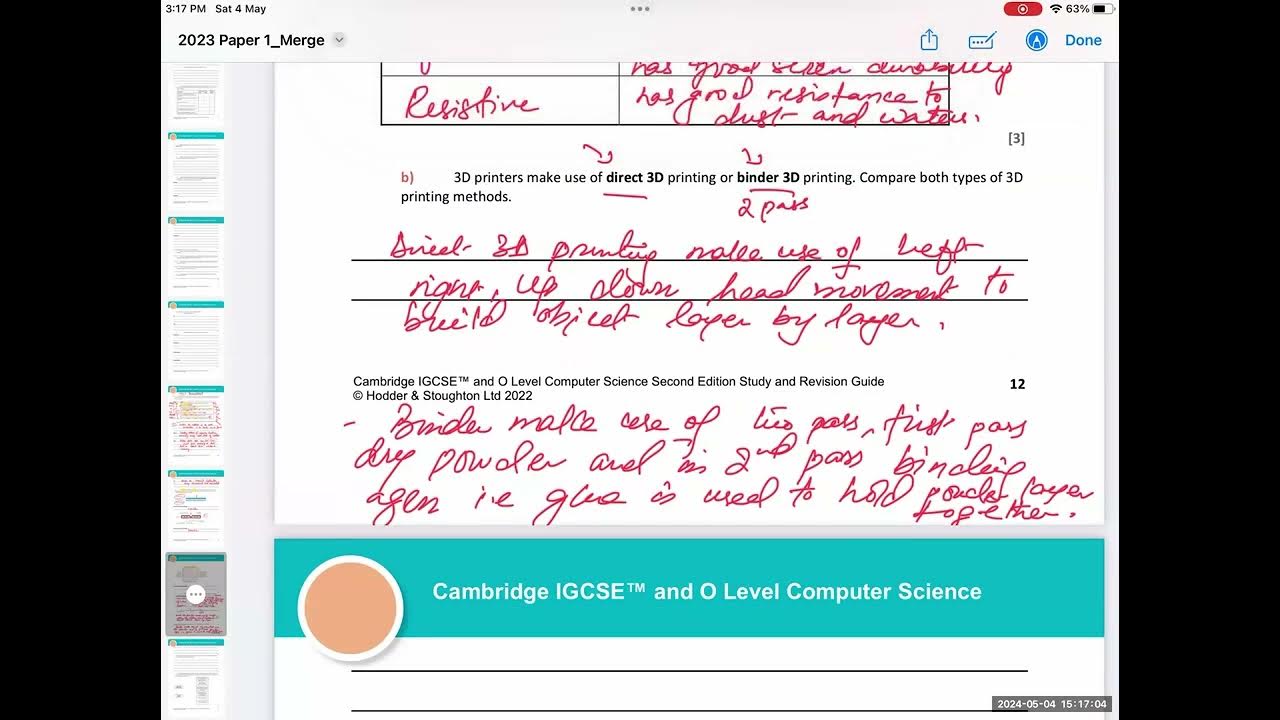 3:17 PM Sat 4 May
63%
2023 Paper 1_Merge
Done
has good screen
Resistive has good resistance to
dust and waters.
[3]
b) 3D printers make use of direct 3D printing or binder 3D printing. Compare both types of 3D
printing methods.
2 pass
Direct 3D printing make use of left
right, up down head movement to
build object layer by layer.
Cambridge IGCSE and O Level Computer Science Second Edition Study and Revision Guide
© Hodder & Stoughton Ltd 2022
12
- Binder make use of two pass, first pass
dry powder and in 2nd pass binding
agen i.e glue is used to hold powder layer
together.
Cambridge IGCSE™ and O Level Computer Science
2024-05-04 15:17:04